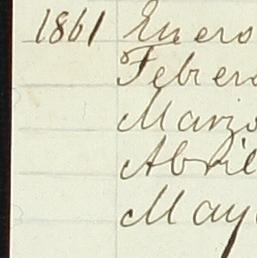 1861 Enero
Febrero
Marzo
Abril
May